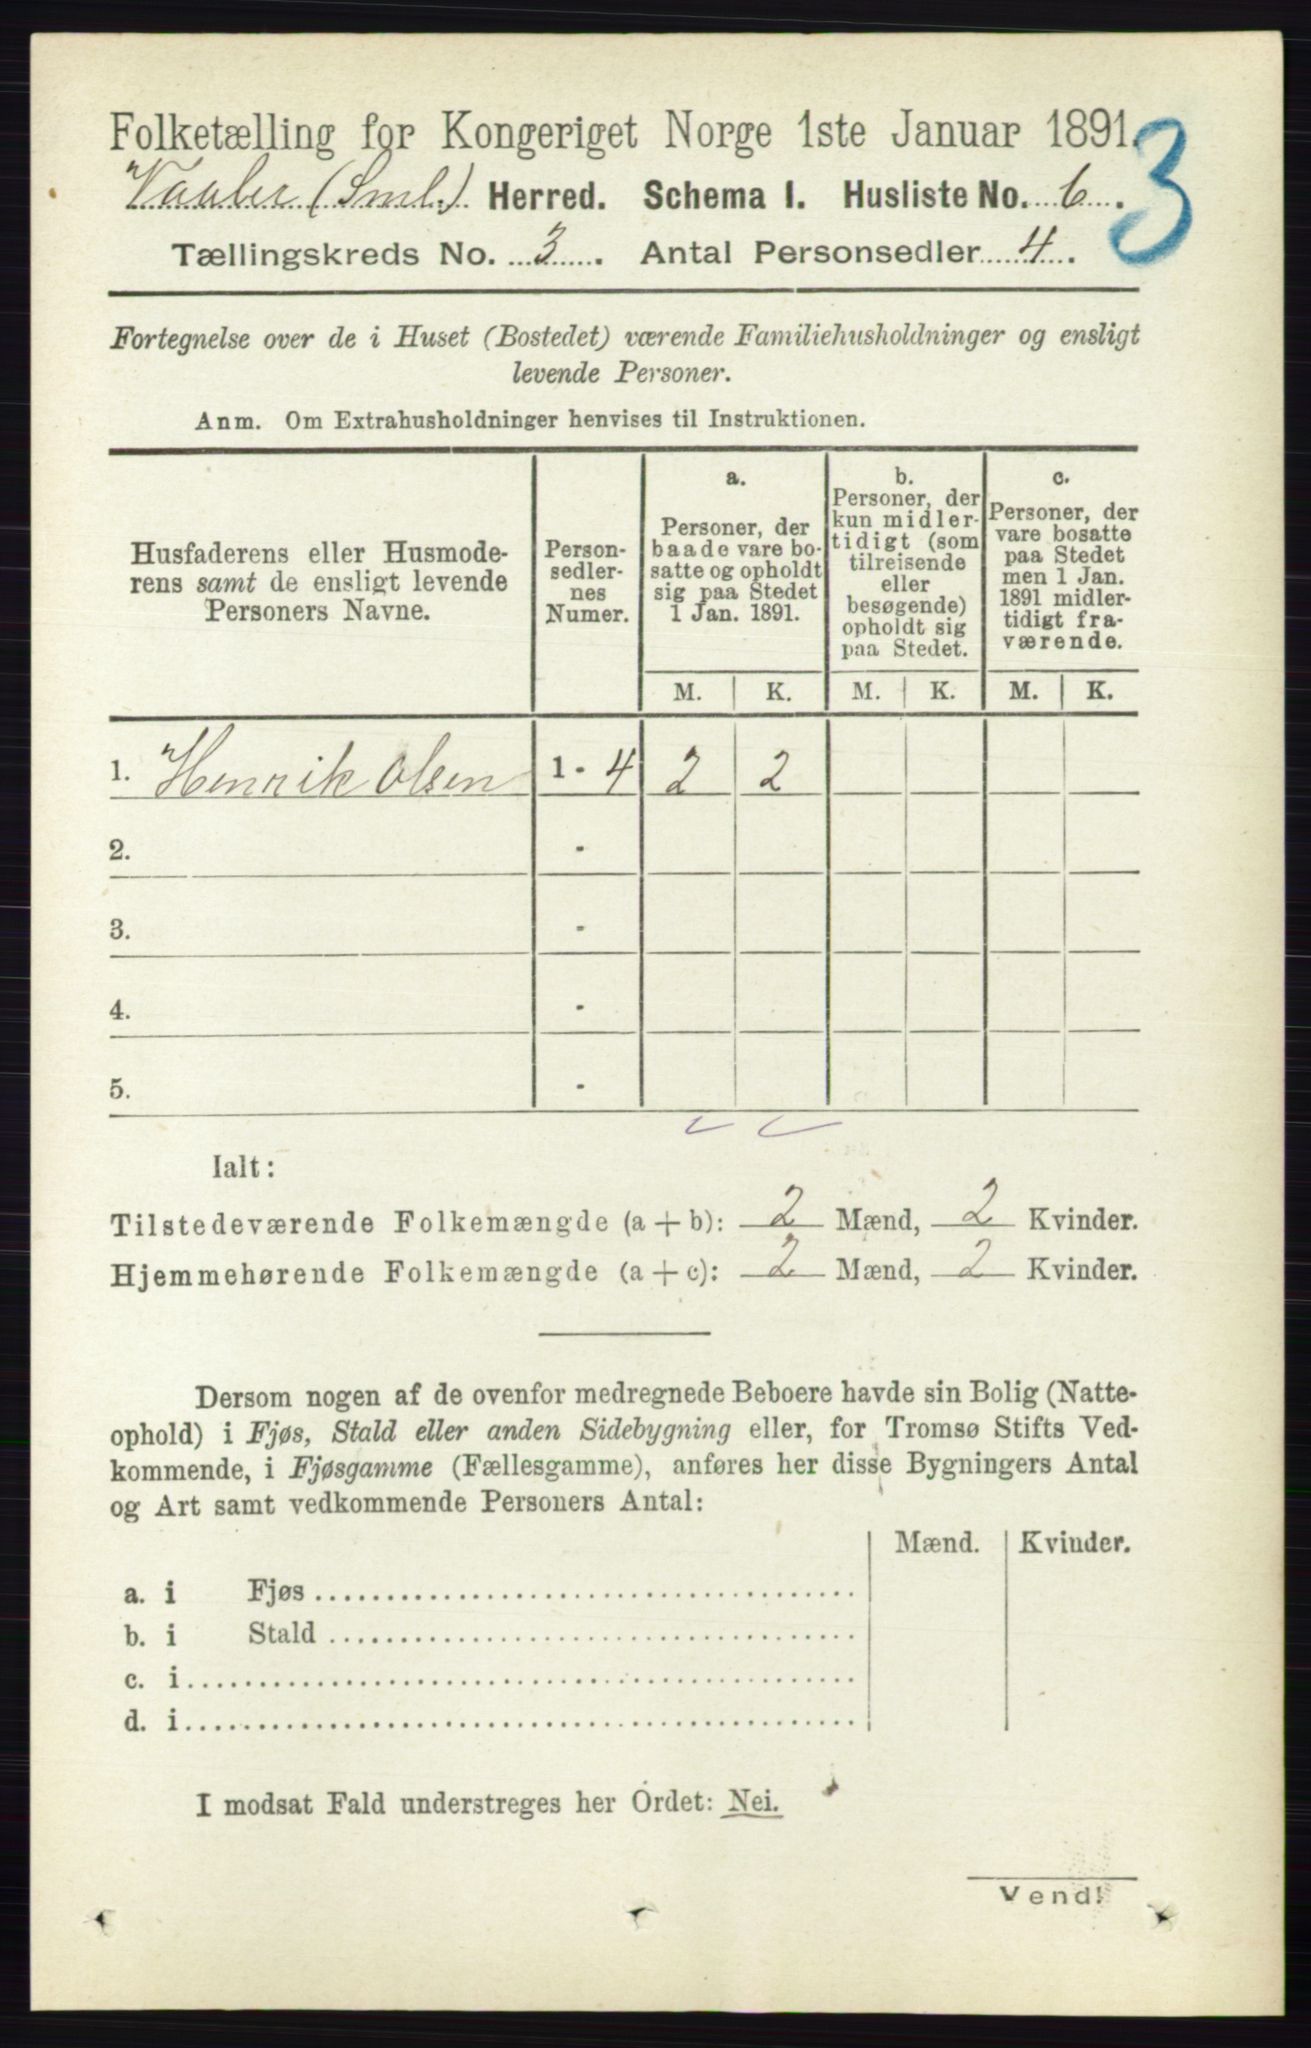 Folketælling for Kongeriget Norge 1ste Januar 1891.
3
Vaaler (Sml.) Herred. Schema I. Husliste No. 6.
Tællingskreds No. 3. Antal Personsedler 4.
Fortegnelse over de i Huset (Bostedet) værende Familiehusholdninger og ensligt
levende Personer.
Anm. Om Extrahusholdninger henvises til Instruktionen.
Husfaderens eller Husmode-
rens samt de ensligt levende
Personers Navne.
Person-
sedler-
nes
Numer.
a.
Personer, der
baade vare bo-
satte og opholdt
sig paa Stedet
1 Jan. 1891.
b.
Personer, der
kun midler-
tidigt (som
tilreisende
eller
besøgende)
opholdt sig
paa Stedet.
c.
Personer, der
vare bosatte
paa Stedet
men 1 Jan.
1891 midler-
tidigt fra-
værende.
M. K. M. K. M. K.
1. Henrik Olsen 1 - 4 2 2
2. -
3. -
4. -
5. -
Ialt:
Tilstedeværende Folkemængde (a + b): 2 Mænd, 2 Kvinder.
Hjemmehørende Folkemængde (a + c): 2 Mænd, 2 Kvinder.
Dersom nogen af de ovenfor medregnede Beboere havde sin Bolig (Natte-
ophold) i Fjøs, Stald eller anden Sidebygning eller, for Tromsø Stifts Ved-
kommende, i Fjøsgamme (Fællesgamme), anføres her disse Bygningers Antal
og Art samt vedkommende Personers Antal:
Mænd. Kvinder.
a. i Fjøs
b. i Stald
c. i
d. i
I modsat Fald understreges her Ordet: Nei.
Vend!